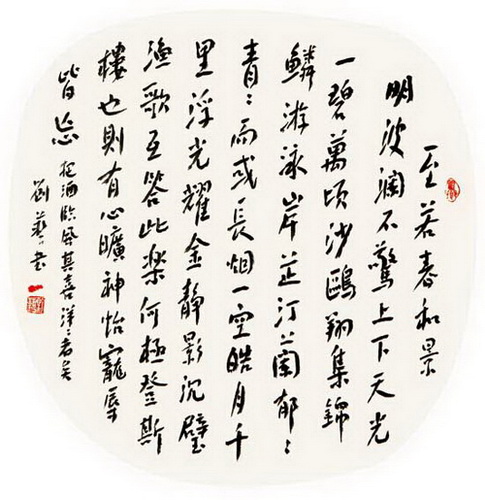 至若春和景
明波瀾不驚上下天光
一碧萬頃沙鷗翔集錦
鱗游泳岸芷汀蘭郁〻
青〻而或長烟一空皓月千
里浮光耀金静影沉璧
漁歌互答此樂何極登斯
樓也則有心曠神怡寵辱
皆忘把酒臨風其喜洋〻者矣
劉藝書